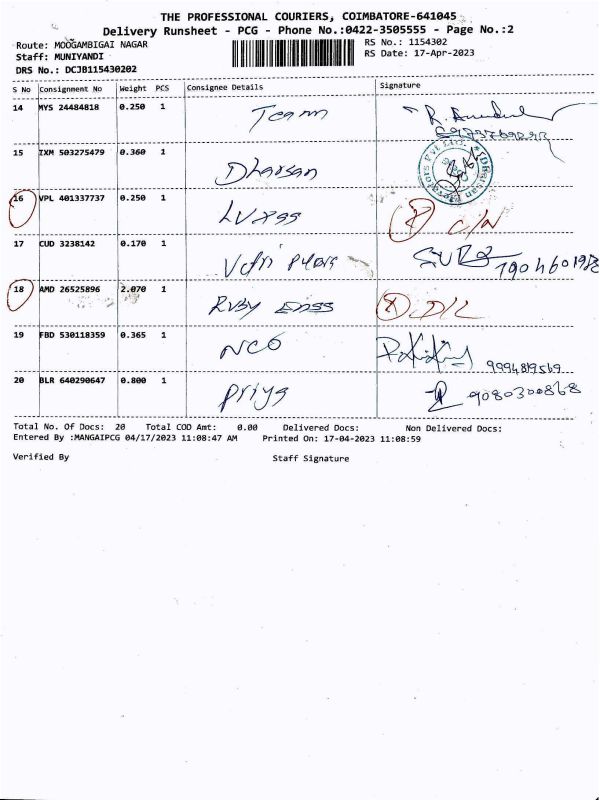 THE PROFESSIONAL COURIERS, COIMBATORE-641045
Delivery Runsheet - PCG - Phone No.:0422-3505555 - Page No.:2
Route: MOOGAMBIGAI NAGAR
RS No.: 1154302
Staff: MUNIYANDI
RS Date: 17-Apr-2023
DRS No.: DCJB115430202
S No Consignment No Weight PCS Consignee Details Signature
14 MYS 24484818 0.250 1 Team
15 IXM 503275479 0.360 1 Dharsan
16 VPL 401337737 0.250 1
17 CUD 3238142 0.170 1
18 AMD 26525896 2.070 1 D/L
19 FBD 530118359 0.365 1 NCO
20 BLR 640290647 0.800 1 Priya 9080300868
Total No. Of Docs: 20 Total COD Amt: 0.00 Delivered Docs: Non Delivered Docs:
Entered By :MANGAIPCG 04/17/2023 11:08:47 AM Printed On: 17-04-2023 11:08:59
Verified By Staff Signature